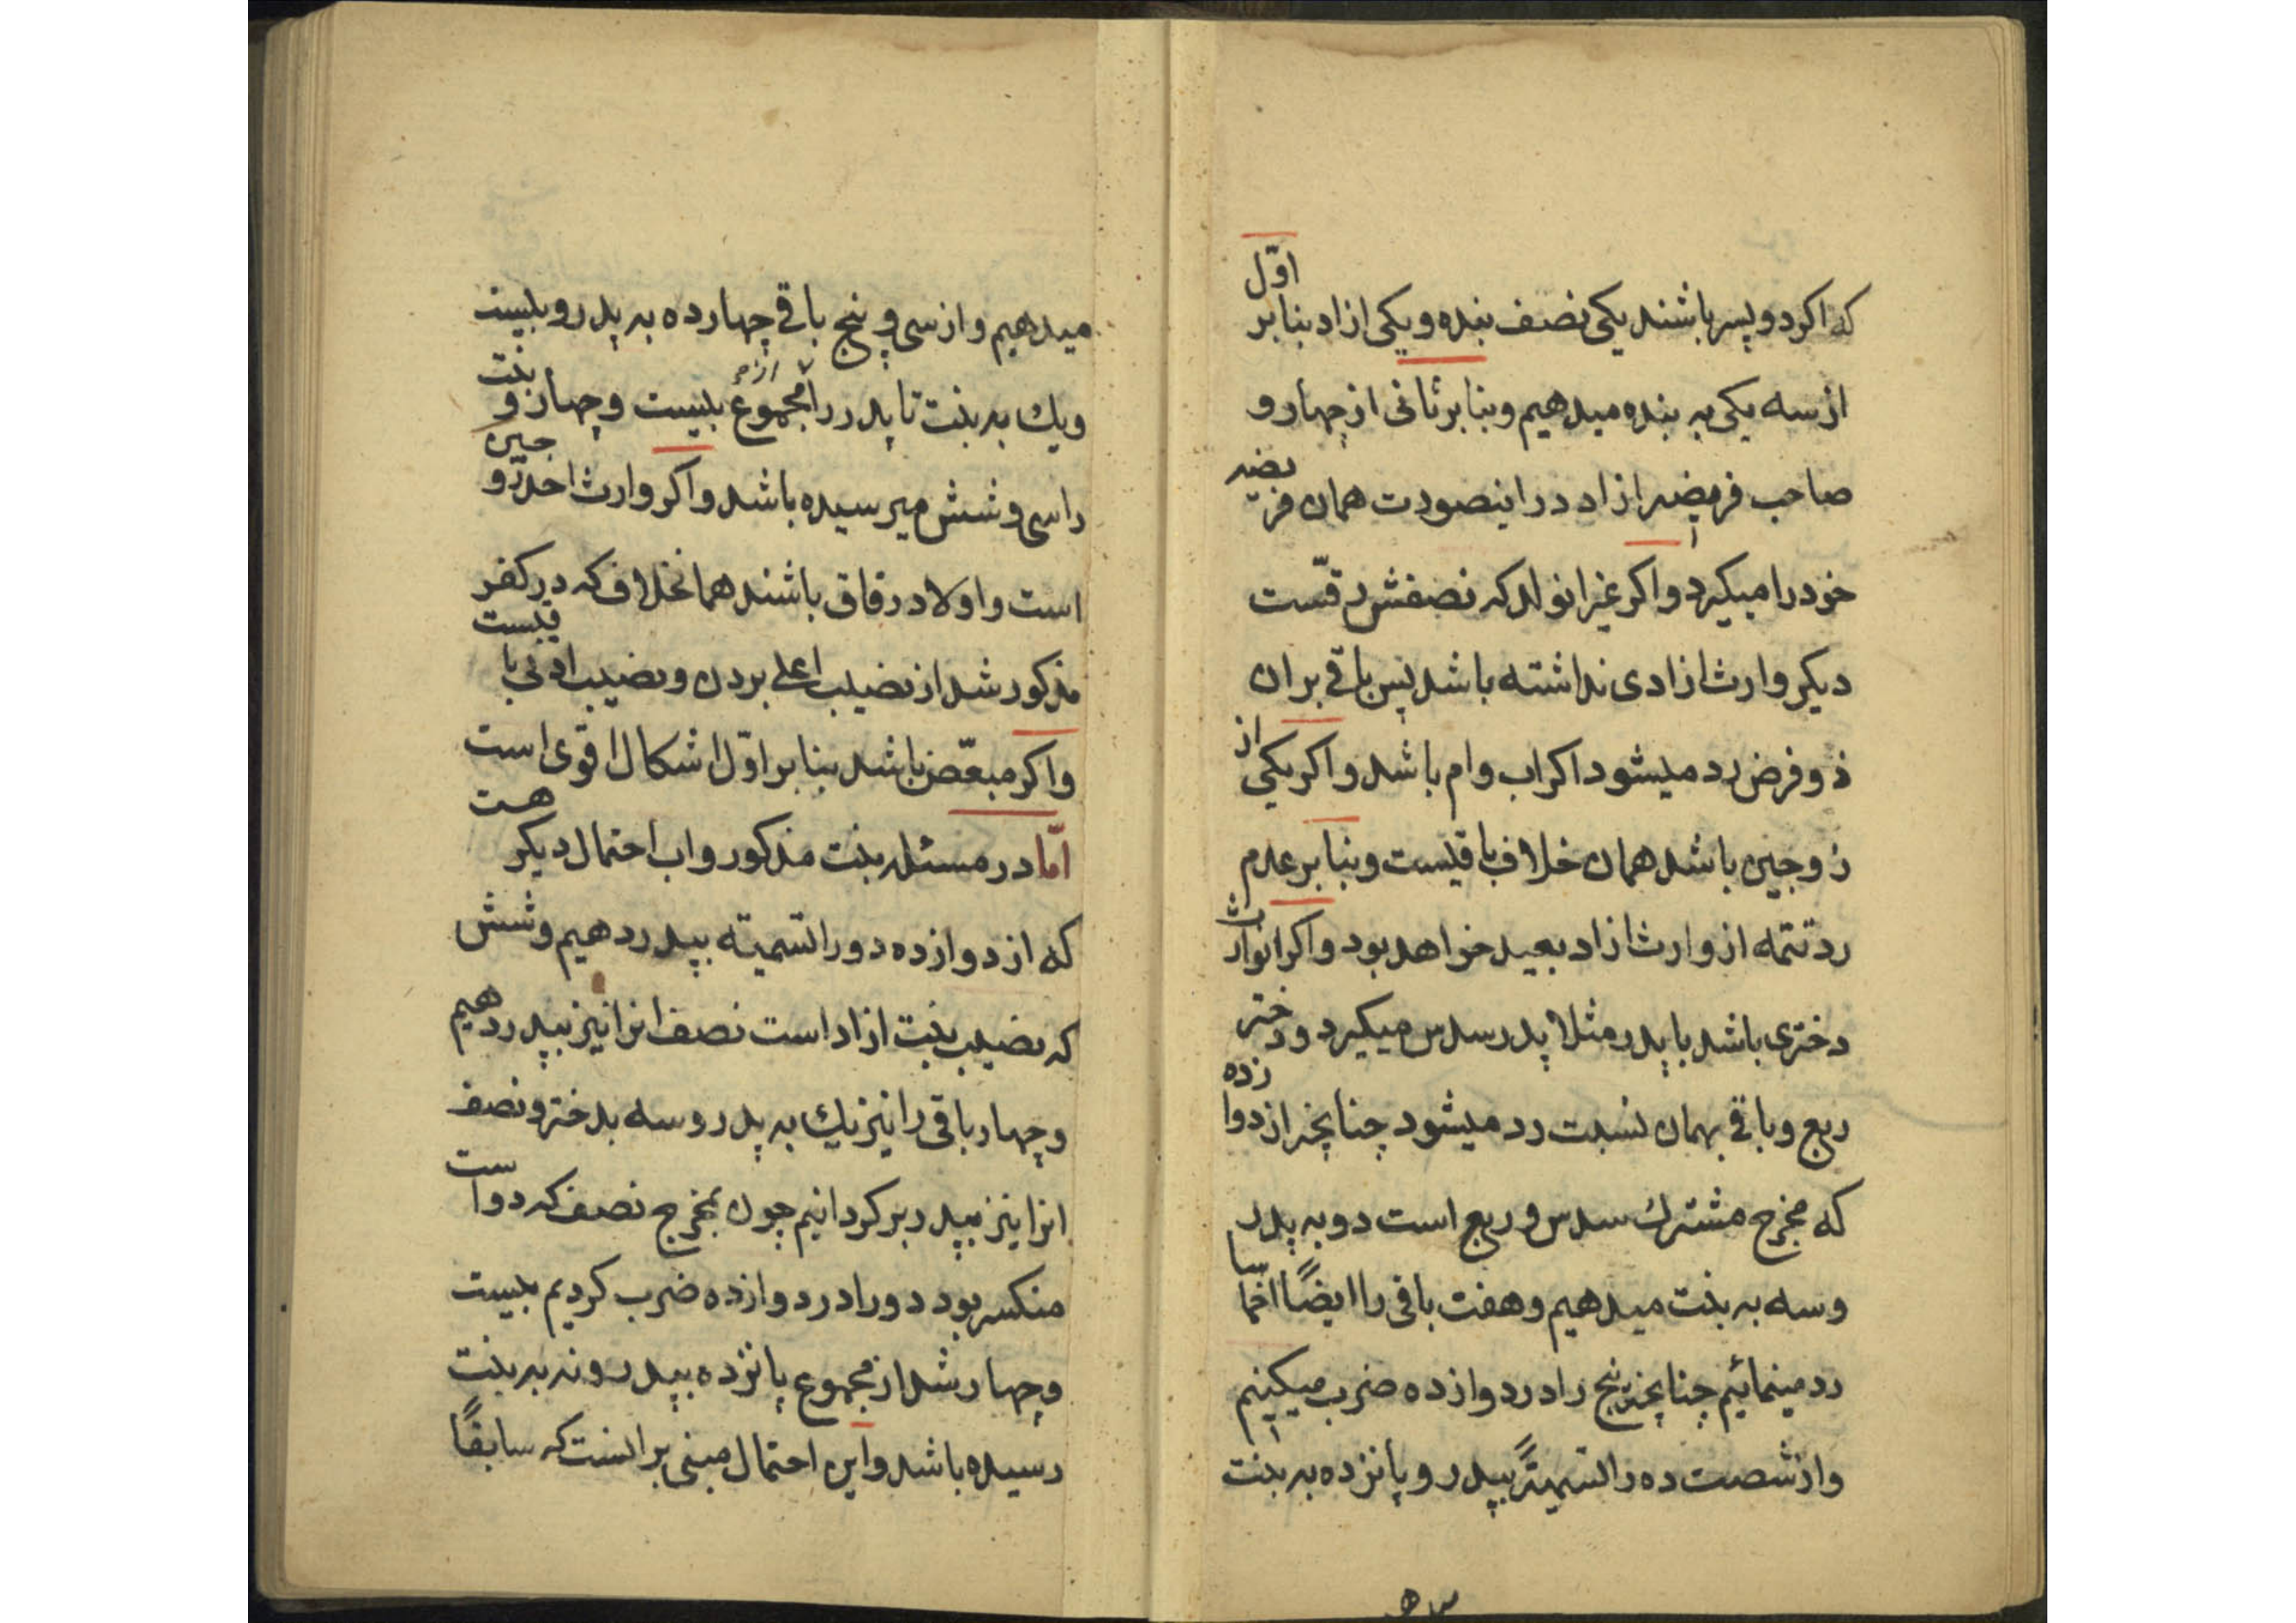 که اکر دو پسر باشند یکی نصف بنده و یکی ازاد بنابر اوّل
از سه یکی به بنده میدهیم و بنابر ثانی از چهار و
صاحب فریضه ازاد در اینصورت همان فریضه
خود را میکیرد و اکر غیر انولد که نصفش رقّست
دیکر وارث ازادی نداشته باشد پس باقی بر ان
ذو فرض رد میشود اکر اب و ام باشد و اکر یکی از
زوجین باشد همان خلاف باقیست و بنابر عدم
رد تتمه از وارث ازاد بعید خواهد بود و اکر انوارث
دختری باشد با پدر مثلا پدر سدس میکیرد و دختر
ربع و باقی بهمان نسبت رد میشود چنانچه از دوازده
که مخرج مشترك سدس و ربع است دو به پدر
و سه به بنت میدهیم و هفت باقی را ایضًا اخماسا
رد مینمائیم چنانچه پنج را در دوازده ضرب میکینم
و از شصت ده را تسمیةً بپدر و پانزده به بنت
میدهیم و از سی و پنج باقی چهارده به پدر و بیست
و یك به بنت تا پدر را از مجموع بیست و چهار و بنت
را سی و شش میرسیده باشد و اکر وارث احد زوجین
است و اولاد رقاق باشند همانخلاف که در کفر
مذکور شد از نصیب اعلی بردن و نصیب ادنی باقیست
و اکر مبعّض باشد بنابر اوّل اشکال اقوی است
امّا در مسئله بنت مذکور و اب احتمال دیکر هست
که از دوازده دو را تسمیته بپدر دهیم و شش
که نصیب بنت ازاد است نصف انرا نیز بپدر دهیم
و چهار باقی را نیز یك به پدر و سه بدختر و نصف
انرا نیز بپدر بر کردانیم چون مخرج نصف که دو است
منکسر بود دو را در دوازده ضرب کردیم بیست
و چهار شد از مجموع پانزده بپدر و نه به بنت
رسیده باشد و این احتمال مبنی بر انست که سابقًا